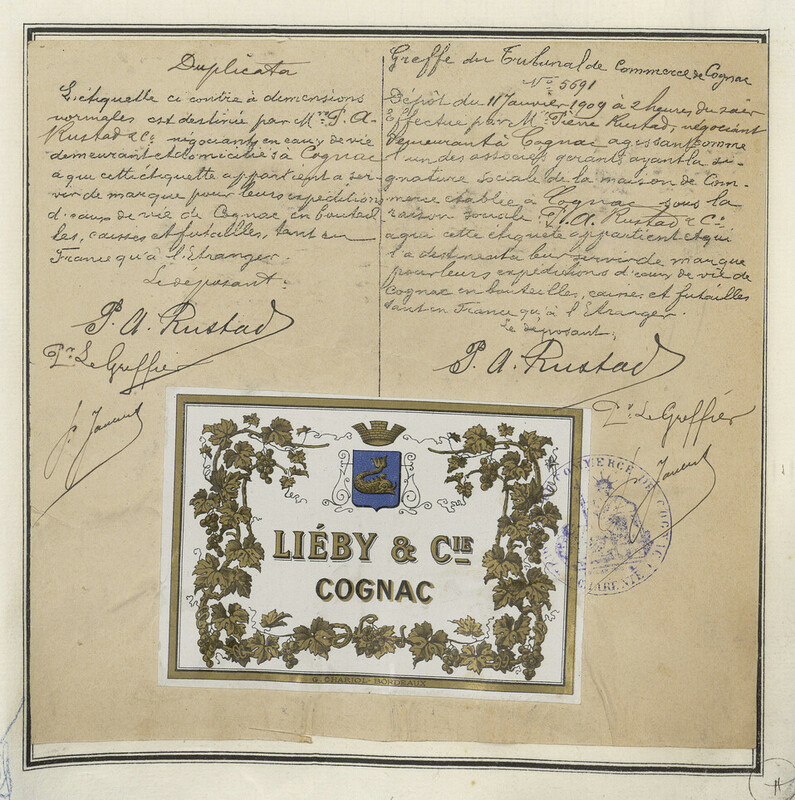 Duplicata
L'étiquette ci contre à dimensions
normales est destinée par Mrs P. A.
Rustad & Co négociants en eaux de vie
demeurant et domiciliés à Cognac
à qui cette étiquette appartient a ser-
vir de marque pour leurs expéditions
d'eaux de vie de Cognac en bouteil
les, caisses et futailles, tant en
France qu'à l'Etranger.
Le déposant:
P. A. Rustad
Pr Le Greffier
Greffe du Tribunal de Commerce de Cognac
No 5691
Dépôt du 11 Janvier 1909 à 2 heures du soir
Effectué par Mr Pierre Rustad, négociant
demeurant à Cognac agissant comme
l'un des associés gérants ayant la si-
gnature sociale de la maison de Com-
merce établie à Cognac sous la
raison sociale P. A. Rustad & Co
à qui cette étiquette appartient et qui
l'a destinée à leur servir de marque
pour leurs expéditions d'eaux de vie de
Cognac en bouteilles, caisses et futailles
tant en France qu'à l'Etranger.
Le déposant,
P. A. Rustad
Pr Le Greffier
LIÉBY & CIE
COGNAC
G. CHARIOL-BORDEAUX
COMMERCE DE COGNAC